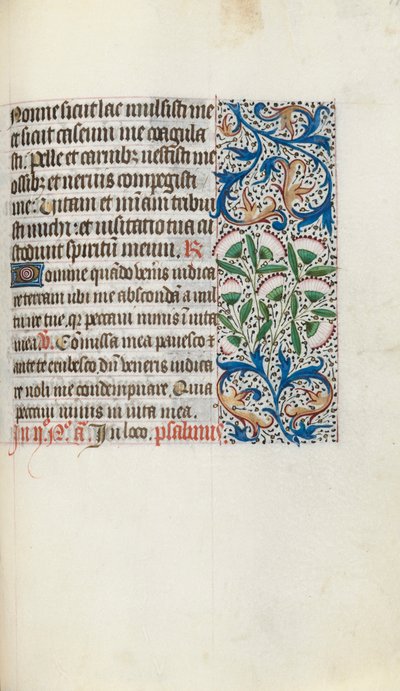 Nonne sicut lac mulsisti me
et sicut caseum me coagula
sti. Pelle et carnibꝫ uestisti me
ossibꝫ et neruis compegisti
me. Uitam et mīam tribui
sti michi: et uisitatio tua cu
stodiuit spiritū meum. R
Domine quādo venīs iudica
re terram ubi me abscondā a uul
tu ire tue. qꝛ peccaui nimis ī uita
mea. V. Cōmissa mea pauesco ⁊
ante te erubesco dū veneris iudica
re noli me condempnare. Quia
peccaui nimis in uita mea.
In ij° N° a. In loco. psalmus.